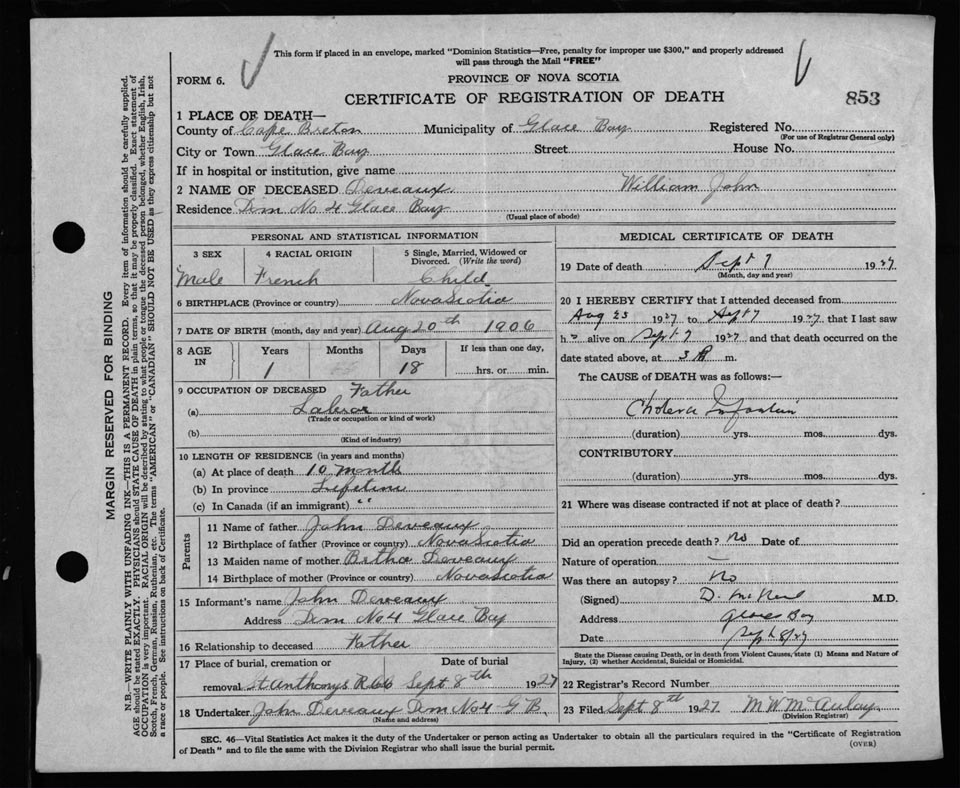 This form if placed in an envelope, marked "Dominion Statistics—Free, penalty for improper use $300," and properly addressed
will pass through the Mail "FREE"
FORM 6.
PROVINCE OF NOVA SCOTIA
CERTIFICATE OF REGISTRATION OF DEATH
853
1 PLACE OF DEATH—
County of Cape Breton Municipality of Glace Bay Registered No.
(For use of Registrar General only)
City or Town Glace Bay Street House No.
If in hospital or institution, give name
2 NAME OF DECEASED Deveaux William John
Residence Dom No 4 Glace Bay
(Usual place of abode)
PERSONAL AND STATISTICAL INFORMATION
3 SEX 4 RACIAL ORIGIN 5 Single, Married, Widowed or
Divorced. (Write the word)
Male French Child
6 BIRTHPLACE (Province or country) Nova Scotia
7 DATE OF BIRTH (month, day and year) Aug 20th 1906
8 AGE IN Years Months Days If less than one day,
1 18 hrs. or min.
9 OCCUPATION OF DECEASED Father
(a) Labror
(Trade or occupation or kind of work)
(b)
(Kind of industry)
10 LENGTH OF RESIDENCE (in years and months)
(a) At place of death 10 month
(b) In province Lifetime
(c) In Canada (if an immigrant) " "
Parents
11 Name of father John Deveaux
12 Birthplace of father (Province or country) Nova Scotia
13 Maiden name of mother Bertha Deveaux
14 Birthplace of mother (Province or country) Nova Scotia
15 Informant's name John Deveaux
Address Dom No 4 Glace Bay
16 Relationship to deceased Father
17 Place of burial, cremation or Date of burial
removal St Anthonys Sept 8th 1927
18 Undertaker John Deveaux Dom No 4 G B
(Name and address)
MEDICAL CERTIFICATE OF DEATH
19 Date of death Sept 7 1927
(Month, day and year)
20 I HEREBY CERTIFY that I attended deceased from
Aug 23 1927 to Sept 7 1927 that I last saw
h alive on Sept 7 1927 and that death occurred on the
date stated above, at 3 m.
The CAUSE OF DEATH was as follows:—
Cholera Infantum
(duration) yrs. mos. dys.
CONTRIBUTORY
(duration) yrs. mos. dys.
21 Where was disease contracted if not at place of death?
Did an operation precede death? no Date of
Nature of operation —
Was there an autopsy? no
(Signed) D. McNeil M.D.
Address Glace Bay
Date Sept 8/27
State the Disease causing Death, or in death from Violent Causes, state (1) Means and Nature of
Injury, (2) whether Accidental, Suicidal or Homicidal.
22 Registrar's Record Number
23 Filed Sept 8th 1927. M W McAulay
(Division Registrar)
SEC. 46—Vital Statistics Act makes it the duty of the Undertaker or person acting as Undertaker to obtain all the particulars required in the "Certificate of Registration
of Death" and to file the same with the Division Registrar who shall issue the burial permit.
(OVER)
MARGIN RESERVED FOR BINDING
N.B.—WRITE PLAINLY WITH UNFADING INK—THIS IS A PERMANENT RECORD. Every item of information should be carefully supplied.
AGE should be stated EXACTLY. PHYSICIANS should STATE CAUSE OF DEATH in plain terms, so that it may be properly classified. Exact statement of
OCCUPATION is very important. RACIAL ORIGIN will be described by stating to what people or tongue the deceased person belonged, whether English, Irish,
Scotch, French, German, Russian, Ruthenian, etc. The terms "AMERICAN" or "CANADIAN" SHOULD NOT BE USED as they express citizenship but not
a race or people. See instructions on back of Certificate.